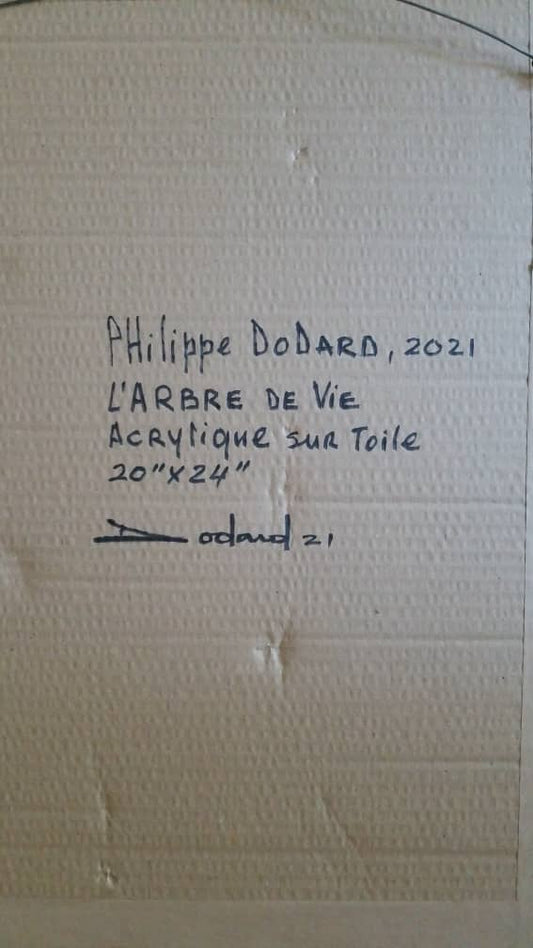 PHilippe DoDARD, 2021
L'ARBRE DE Vie
Acrylique sur Toile
20"x24"
Dodard 21